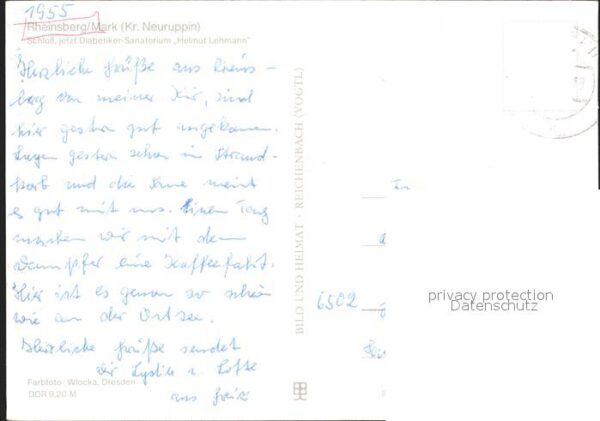 1955
Rheinsberg/Mark (Kr. Neuruppin)
Schloß, jetzt Diabetiker-Sanatorium „Helmut Lehmann"
Herzliche Grüße aus Rheins-
berg von meiner Kur, sind
hier gestern gut angekommen.
Lagen gestern schon im Strand-
korb und die Sonne meint
es gut mit uns. Einen Tag
machen wir mit dem
Dampfer eine Kaffeefahrt.
Hier ist es genau so schön
wie an der Ostsee.
Herzliche Grüße sendet
dir Lydia u. Lotte
aus Greiz
Farbfoto: Wlocka, Dresden
DDR 9,20 M
BILD UND HEIMAT · REICHENBACH (VOGTL)
6502
privacy protection
Datenschutz